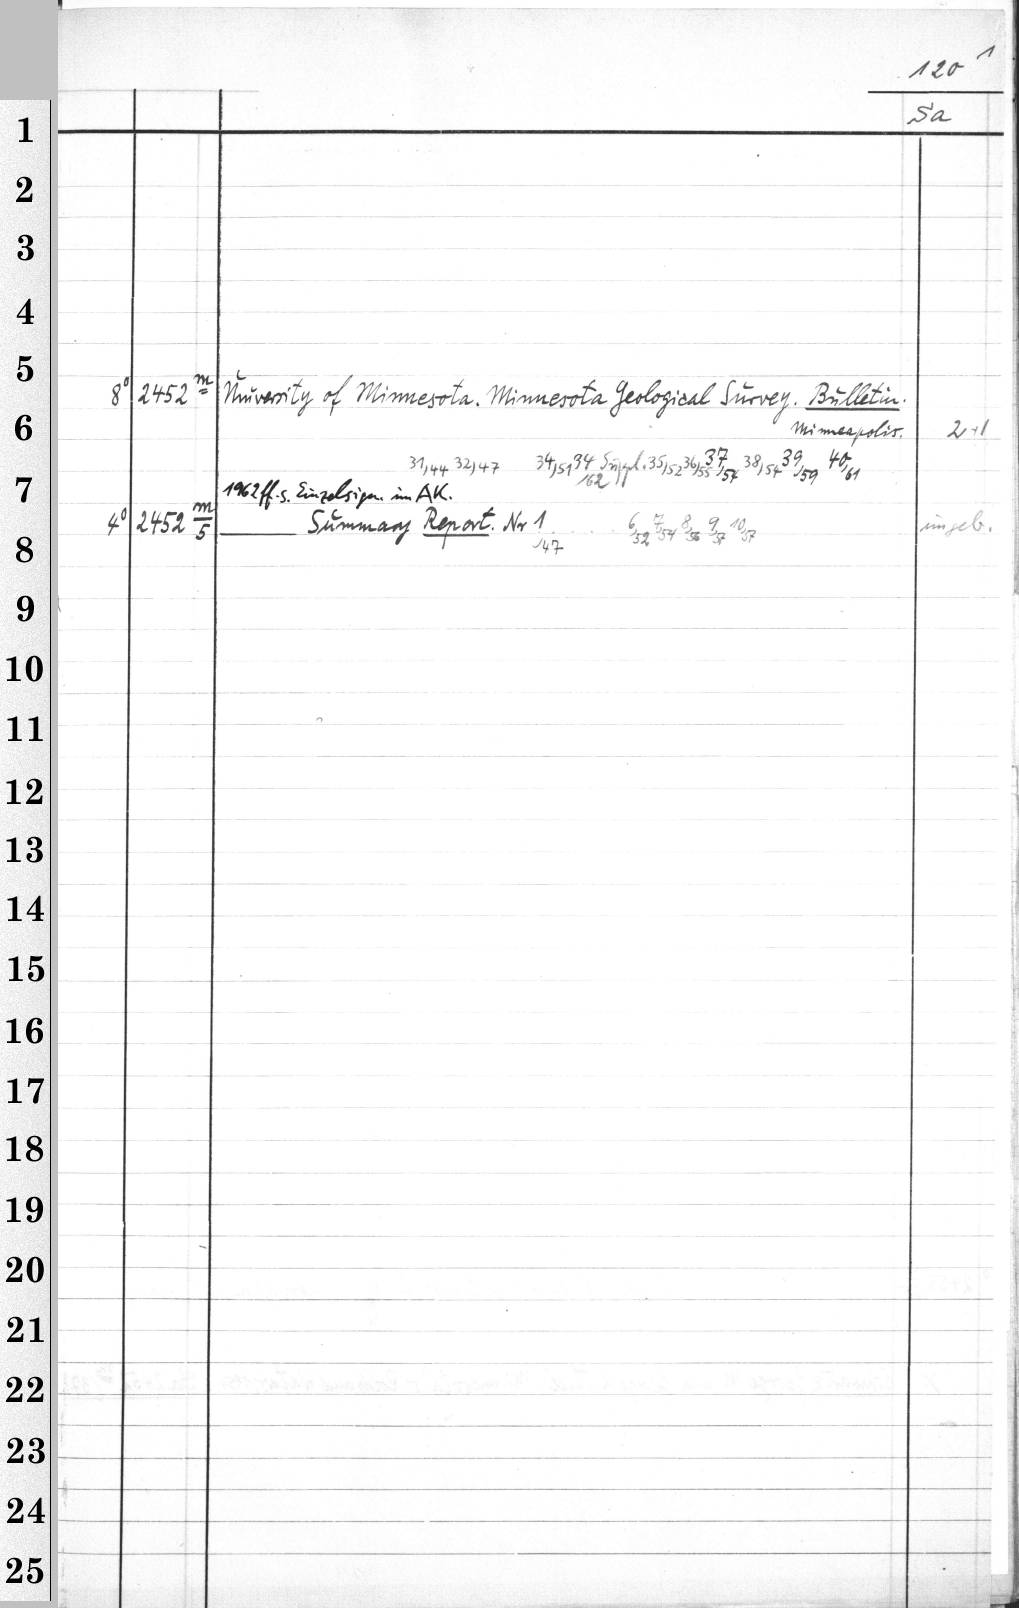 120 1
Sa
1
2
3
4
5
8° 2452 m University of Minnesota. Minnesota Geological Survey. Bulletin.
6
Minneapolis. 2+1
31,44 32,47 34,51 34 Suppl.,62 35,52 36,55 37,54 38,54 39,59 40,61
7
1962ff. s. Einzelsign. im AK.
4° 2452 m/5 ______ Summary Report. Nr 1,47 . . . . . 6,52 7,54 8,56 9,57 10,57 ungeb.
8
9
10
11
12
13
14
15
16
17
18
19
20
21
22
23
24
25